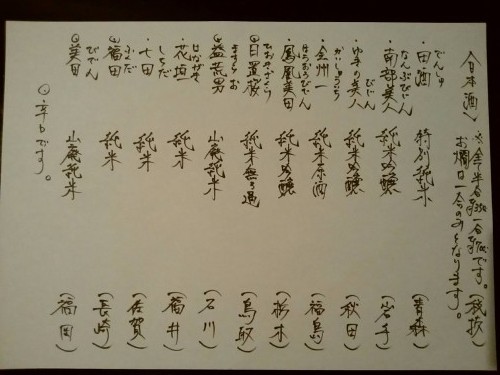 〈日本酒〉 ※全て半合 一合です。(税抜)
お燗は一合のみとなります。
でんしゅ
・田酒 特別純米 (青森)
なんぶびじん
・南部美人 純米吟醸 (岩手)
びじん
・ゆきの美人 純米吟醸 (秋田)
かいしゅういち
・会州一 純米原酒 (福島)
ほうおうびでん
・鳳凰美田 純米吟醸 (栃木)
ひおきざくら
◎日置桜 純米無ろ過 (鳥取)
ますらお
◎益荒男 山廃純米 (石川)
はながき
・花垣 純米 (福井)
しちだ
・七田 純米 (佐賀)
ふくだ
◎福田 純米 (長崎)
びでん
◎美田 山廃純米 (福岡)
◎辛口です。